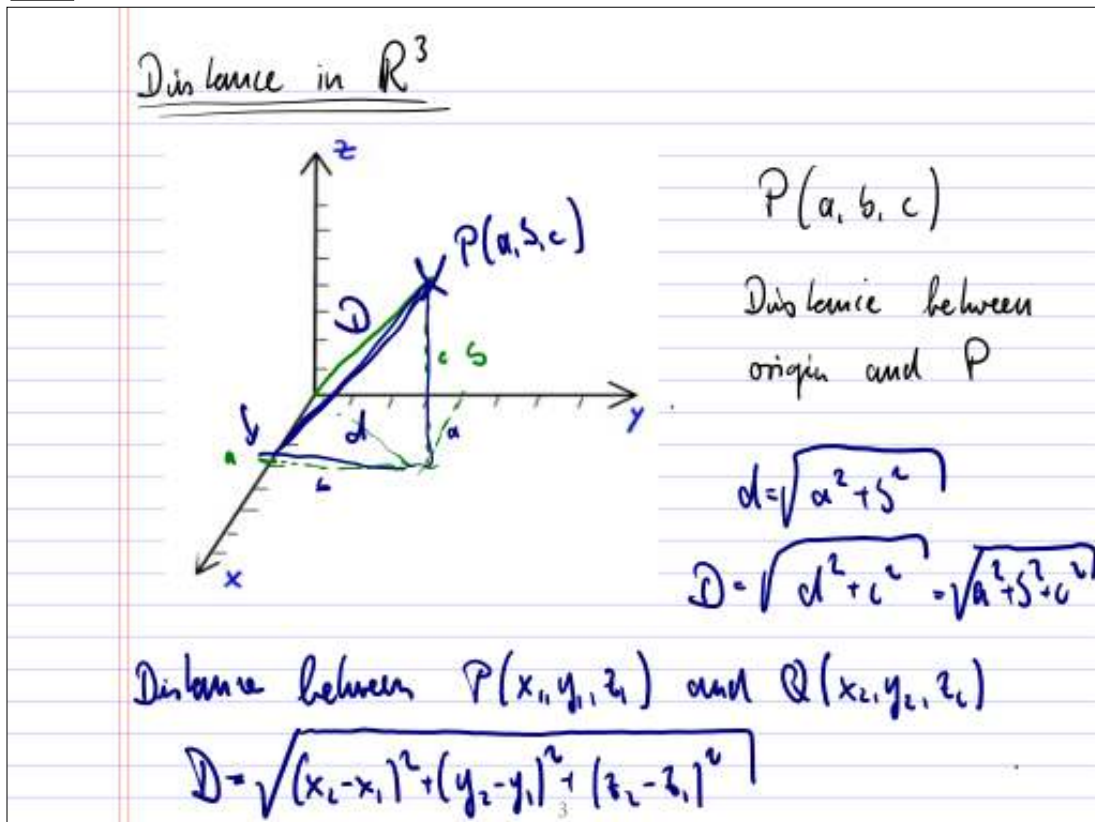 Distance in R³
z
P(a, b, c)
D
c b
y
d a
a
b
x
P(a, b, c)
Distance between
origin and P
d=√(a²+b²)
D=√(d²+c²) =√(a²+b²+c²)
Distance between P(x₁, y₁, z₁) and Q(x₂, y₂, z₂)
D=√((x₂-x₁)²+(y₂-y₁)²+(z₂-z₁)²)
3